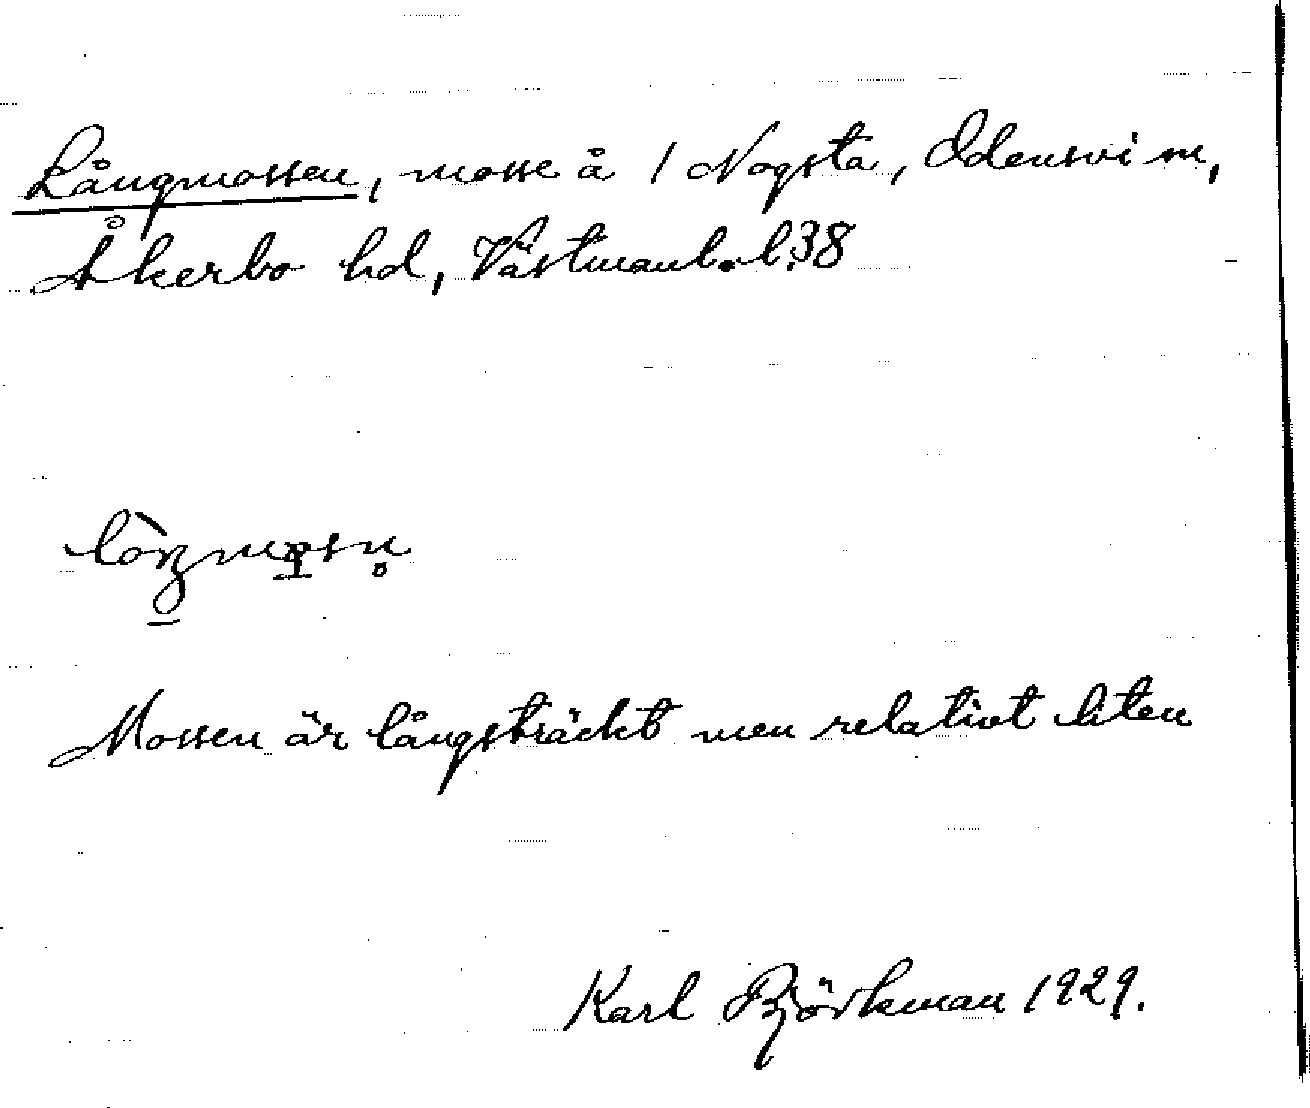 Långmossen, mosse å 1 Nogsta, Odensvi sn,
Åkerbo hd, Västmanl. l. 38
Mossen är långsträckt men relativt liten
Karl Björkman 1929.